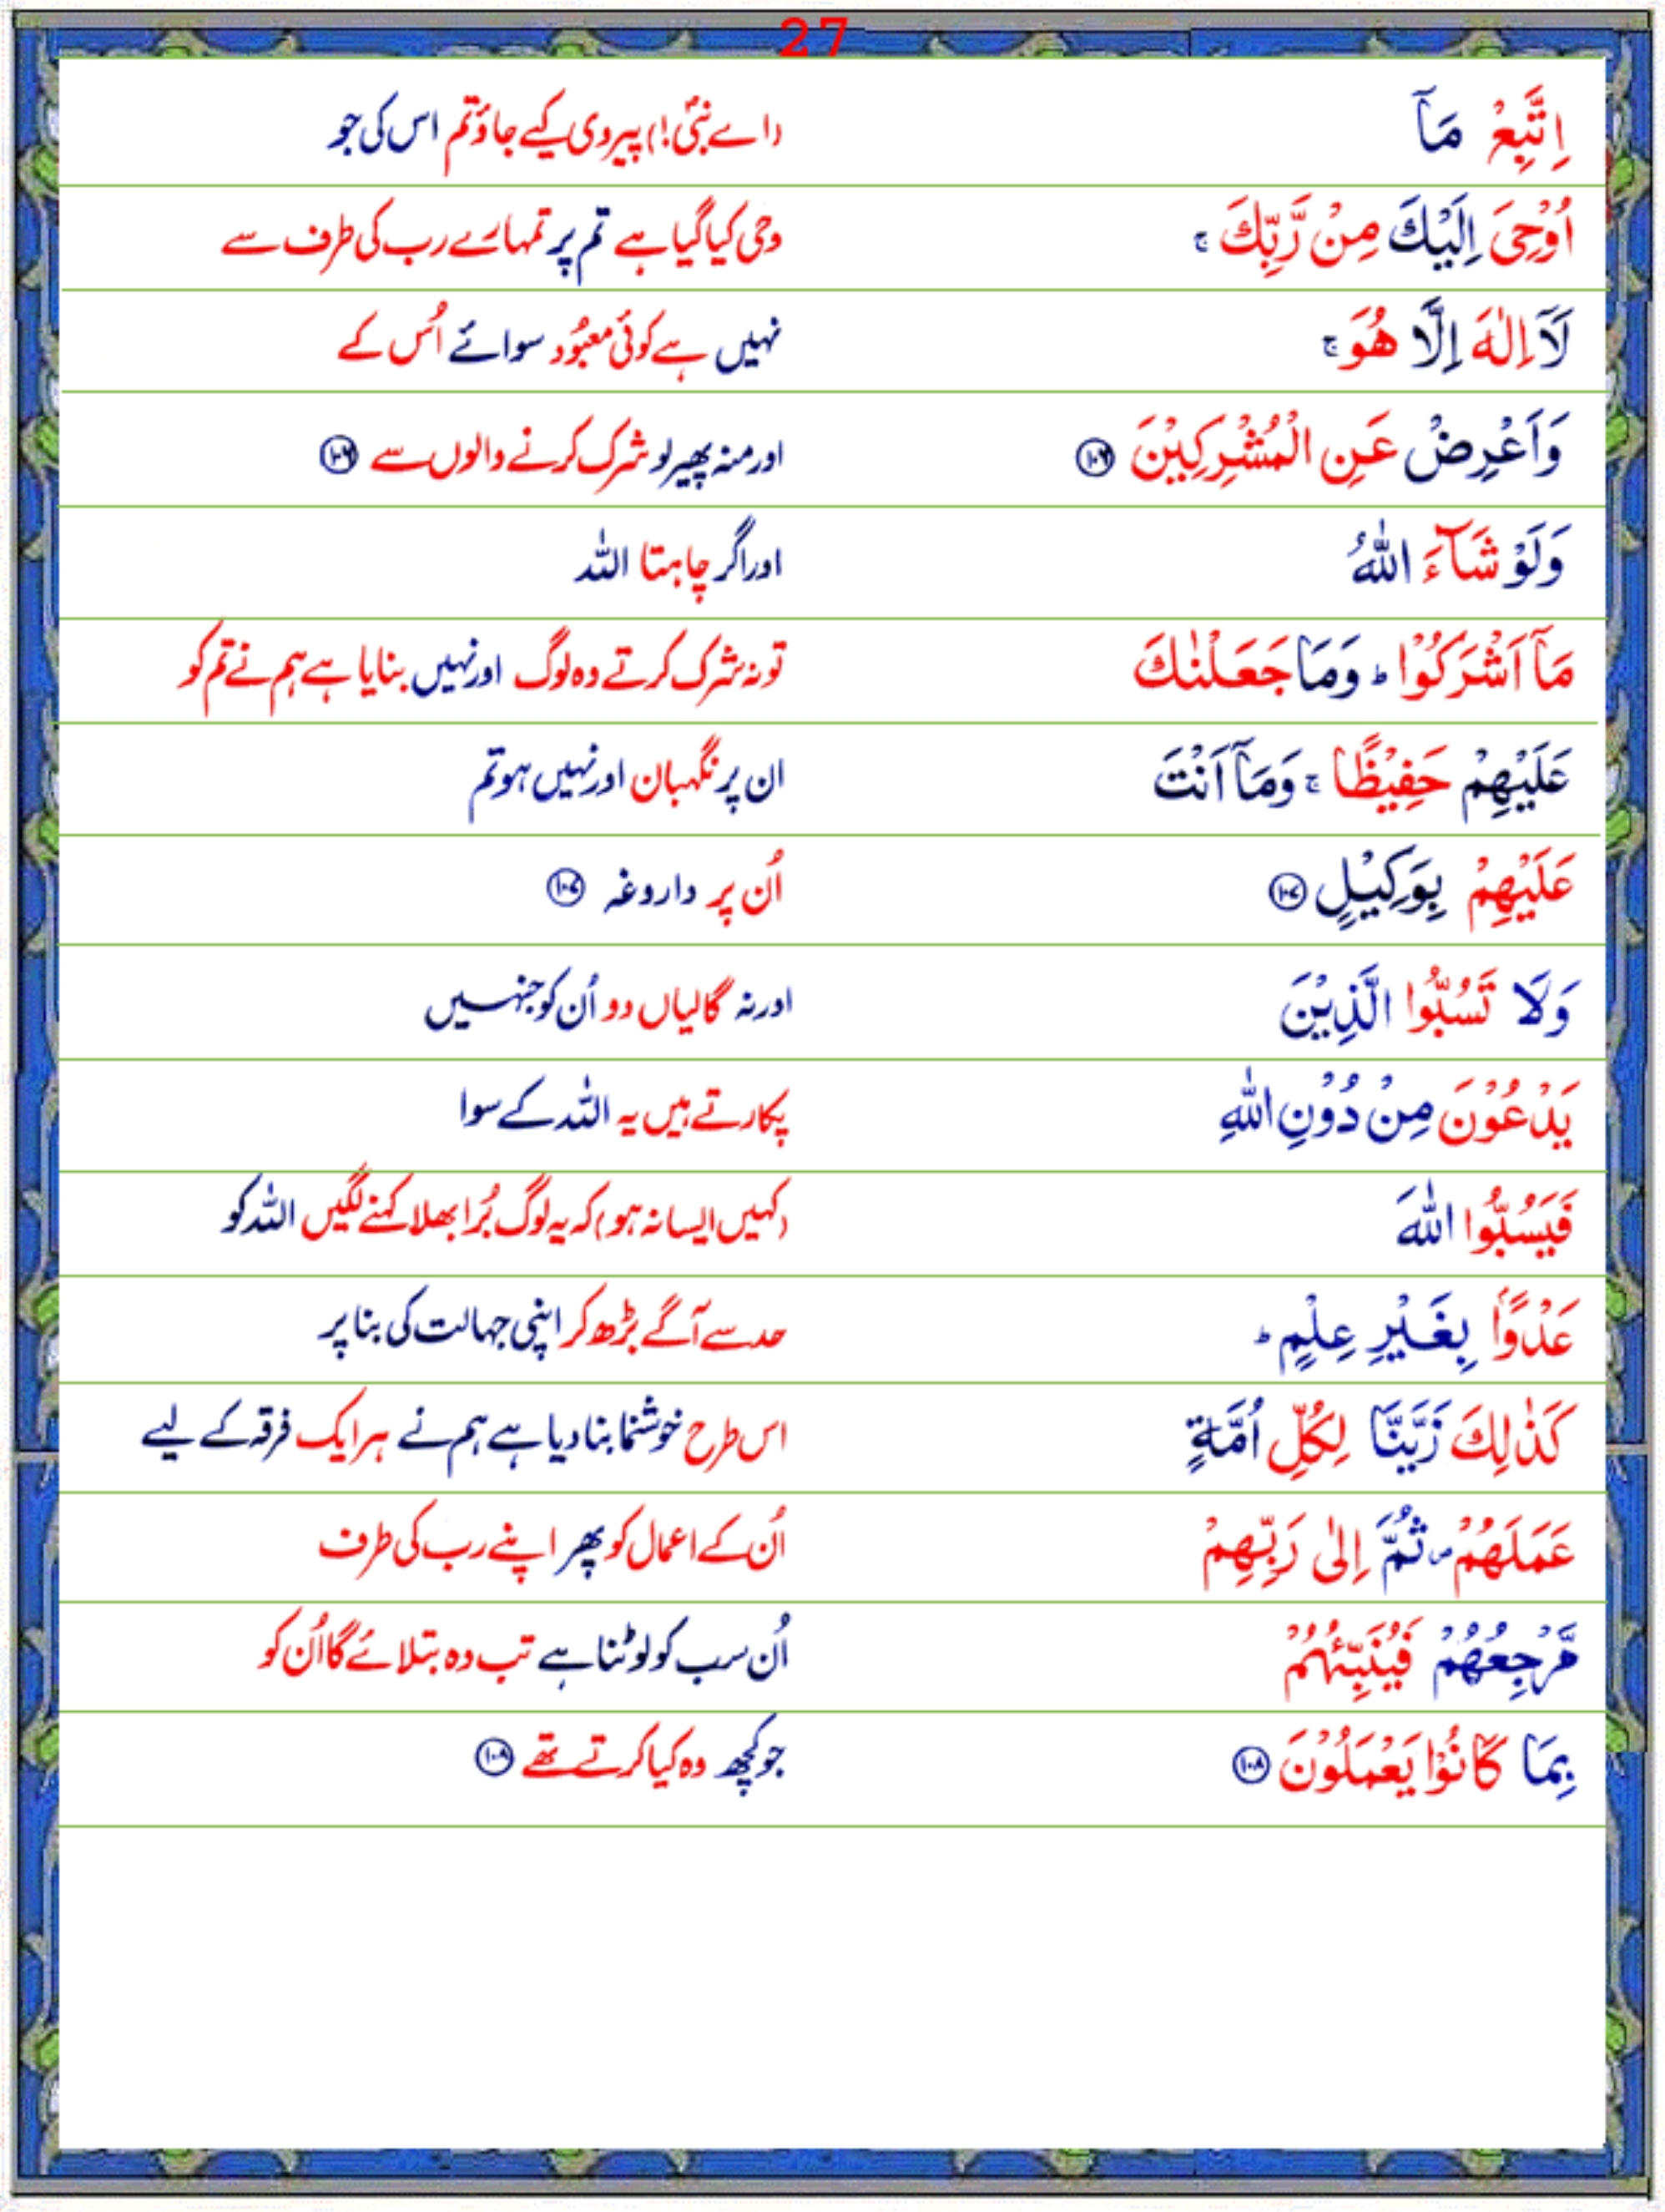 27
اِتَّبِعْ مَآ (اے نبیؐ!) پیروی کیے جاؤ تم اس کی جو
اُوْحِیَ اِلَیْكَ مِنْ رَّبِّكَ ۚ وحی کیا گیا ہے تم پر تمہارے رب کی طرف سے
لَاۤ اِلٰهَ اِلَّا هُوَ ۚ نہیں ہے کوئی معبُود سوائے اُس کے
وَاَعْرِضْ عَنِ الْمُشْرِكِیْنَ ۝۱۰۶ اور منہ پھیر لو شرک کرنے والوں سے ۝۱۰۶
وَلَوْ شَآءَ اللّٰهُ اور اگر چاہتا اللہ
مَاۤ اَشْرَكُوْا ؕ وَمَا جَعَلْنٰكَ تو نہ شرک کرتے وہ لوگ اور نہیں بنایا ہے ہم نے تم کو
عَلَیْهِمْ حَفِیْظًا ۚ وَمَاۤ اَنْتَ ان پر نگہبان اور نہیں ہو تم
عَلَیْهِمْ بِوَكِیْلٍ ۝۱۰۷ اُن پر داروغہ ۝۱۰۷
وَلَا تَسُبُّوا الَّذِیْنَ اور نہ گالیاں دو اُن کو جنہیں
یَدْعُوْنَ مِنْ دُوْنِ اللّٰهِ پکارتے ہیں یہ اللہ کے سوا
فَیَسُبُّوا اللّٰهَ (کہیں ایسا نہ ہو) کہ یہ لوگ بُرا بھلا کہنے لگیں اللہ کو
عَدْوًۢا بِغَیْرِ عِلْمٍ ؕ حد سے آگے بڑھ کر اپنی جہالت کی بنا پر
كَذٰلِكَ زَیَّنَّا لِكُلِّ اُمَّةٍ اس طرح خوشنما بنا دیا ہے ہم نے ہر ایک فرقہ کے لیے
عَمَلَهُمْ ۪ ثُمَّ اِلٰی رَبِّهِمْ اُن کے اعمال کو پھر اپنے رب کی طرف
مَّرْجِعُهُمْ فَیُنَبِّئُهُمْ اُن سب کو لوٹنا ہے تب وہ بتلائے گا اُن کو
بِمَا كَانُوْا یَعْمَلُوْنَ ۝۱۰۸ جو کچھ وہ کیا کرتے تھے ۝۱۰۸